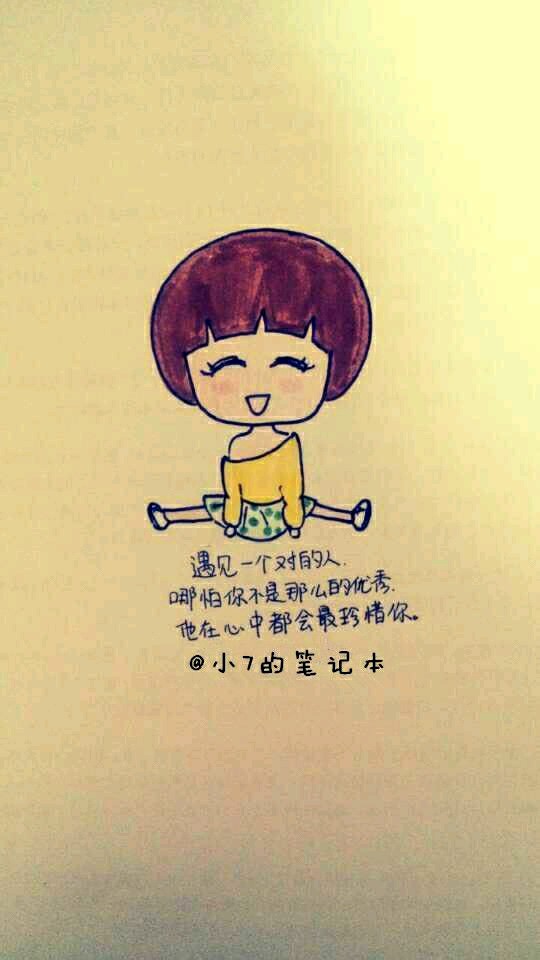 遇见一个对的人.
哪怕你不是那么的优秀.
他在心中都会最珍惜你。
@小7的笔记本